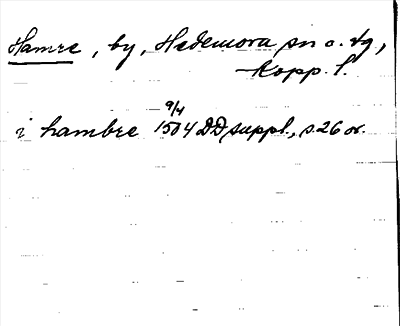 Hamre, by, Hedemora sn o. tg,
Kopp. l.
9/4
i hambre 1504 DD suppl., s. 26 or.